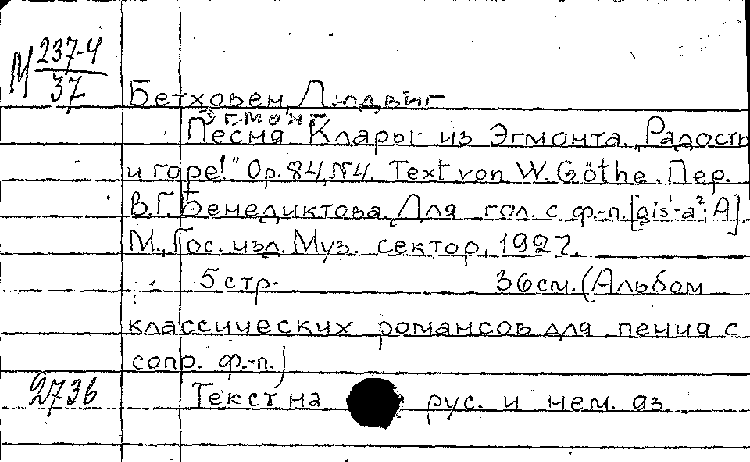 М 237-4
37
Бетховен, Людвиг
Эгмонт
Песня Клары из Эгмонта. „Радость
и горе!" Op. 84, №4. Text von W. Göthe. Пер.
В.Г. Бенедиктова. Для гол. с ф.-п. [gis¹-a²; A].
М., Гос. изд. Муз. сектор, 1927.
5 стр. 36 см. (Альбом
классических романсов для пения с
сопр. ф.-п.)
2736 Текст на рус. и нем. яз.